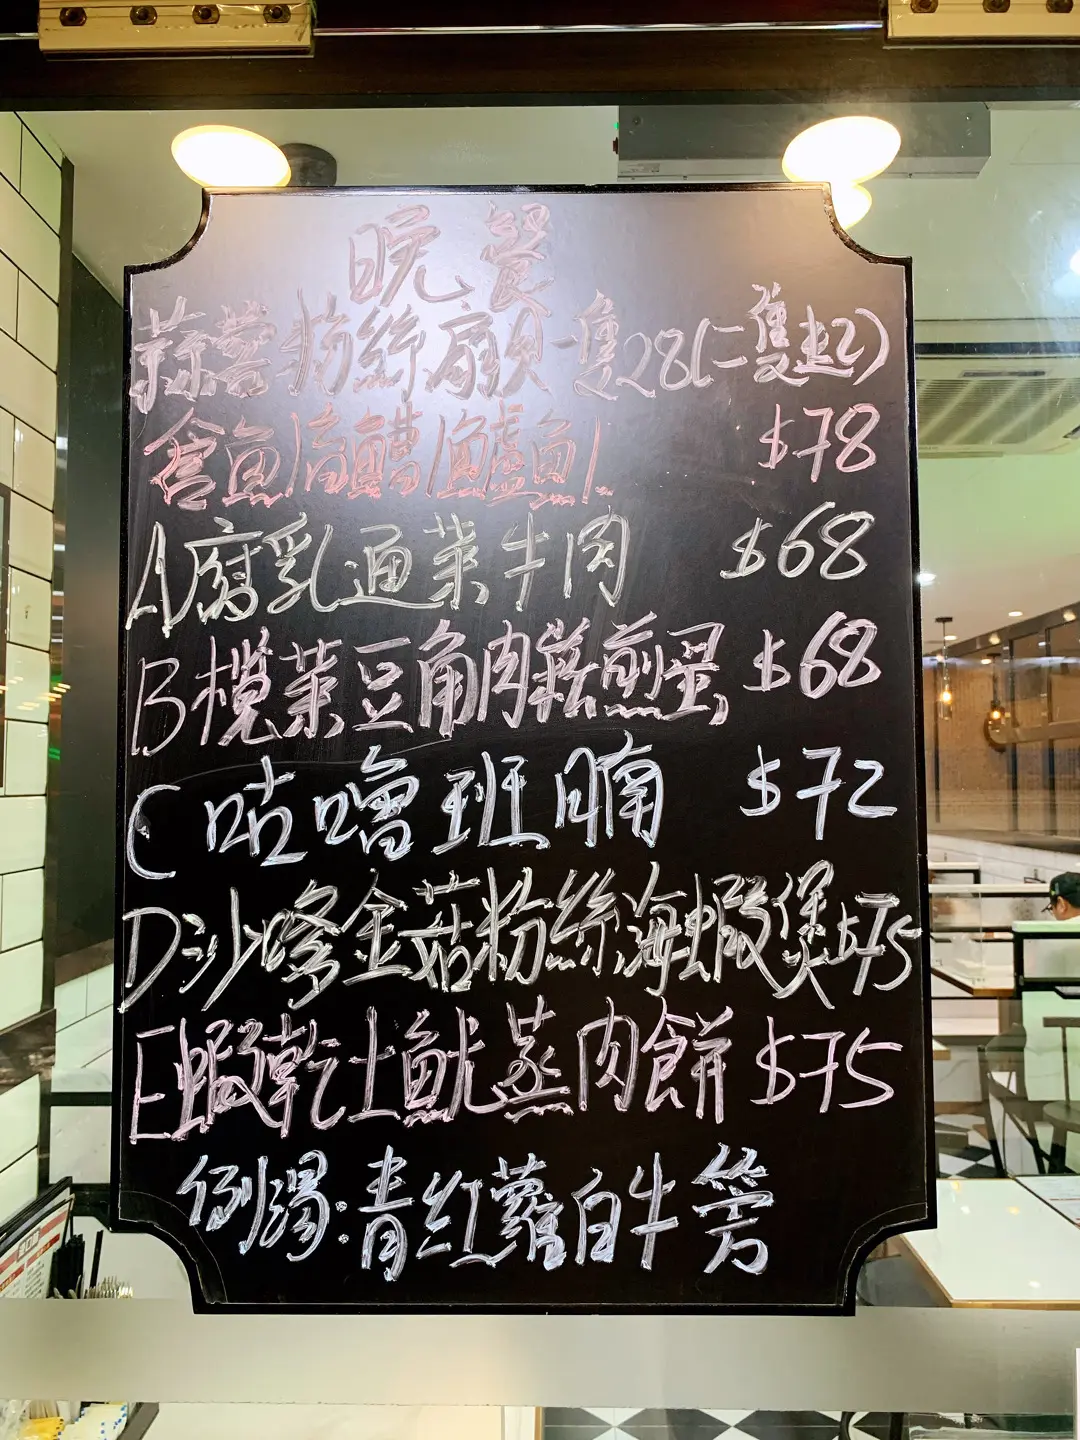 晚餐
蒜蓉粉絲扇貝一隻28(二隻起)
倉魚/鱸魚/ $78
A腐乳通菜牛肉 $68
B欖菜豆角肉鬆煎蛋 $68
C咕嚕班腩 $72
D沙嗲金菇粉絲海蝦煲$75
E蝦乾土魷蒸肉餅 $75
例湯:青紅蘿白牛蒡